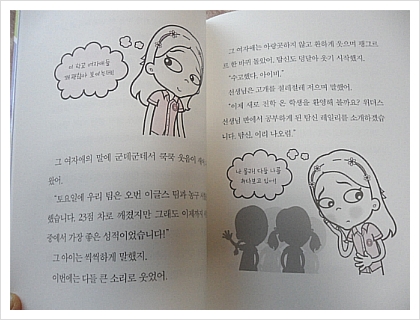 그 여자애의 말에 군데군데서 쿡쿡 웃음이
왔어.
"토요일에 우리 팀은 오번 이글스 팀과 농구
했습니다. 23점 차로 깨졌지만 그래도 이제까지
중에서 가장 좋은 성적이었습니다!"
그 아이는 씩씩하게 말했지.
이번에는 다들 큰 소리로 웃었어.
그 여자애는 아랑곳하지 않고 환하게 웃으며 팽그르
르 한 바퀴 돌았어. 탐신도 덩달아 웃기 시작했지.
"수고했다, 아이비."
선생님은 고개를 절레절레 저으며 말했어.
"이제 새로 전학 온 학생을 환영해 볼까요? 위더스
선생님 반에서 공부하게 된 탐신 테일러를 소개하겠습
니다. 탐신, 이리 나오렴."
나 몰래! 다들 나를
쳐다보고 있어!